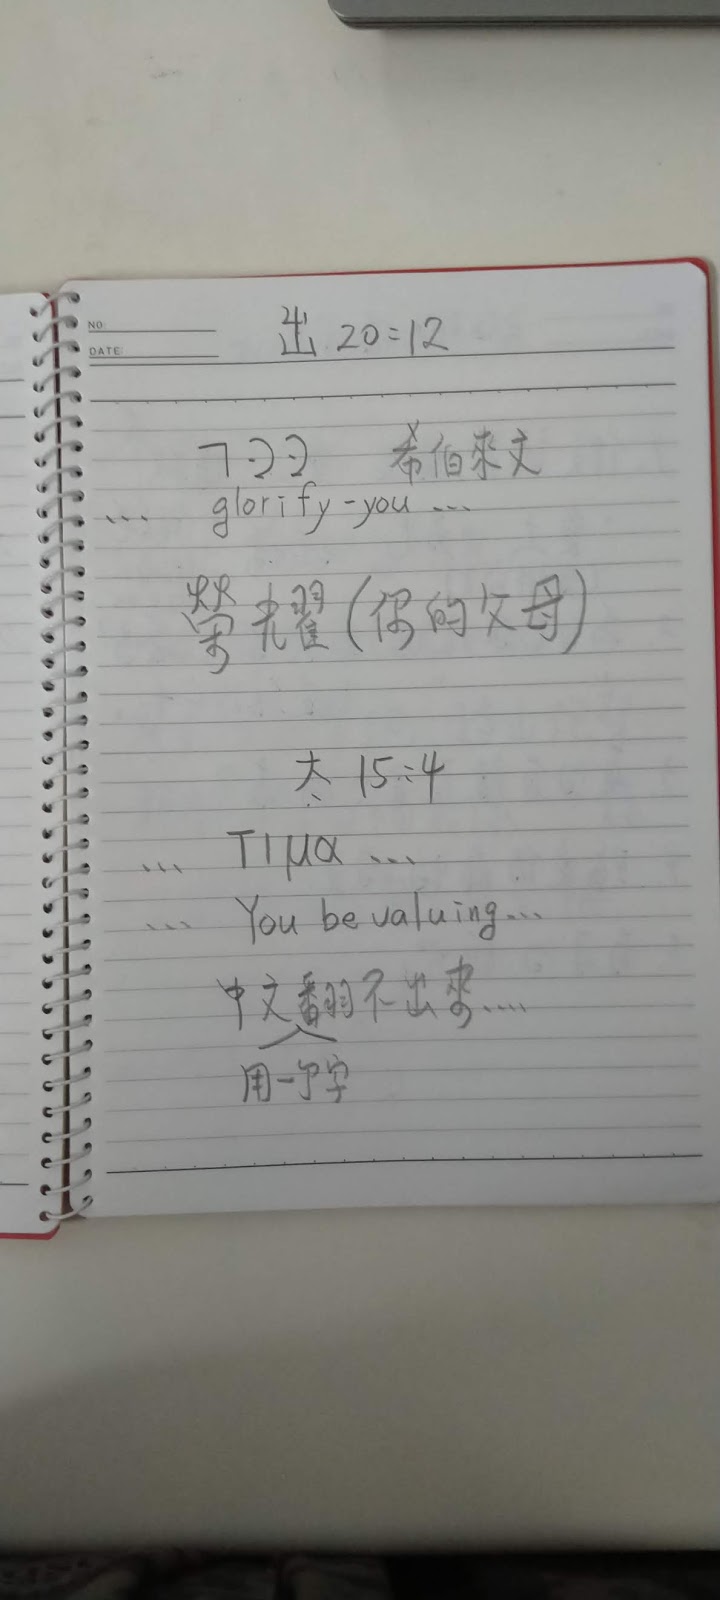 NO:
DATE:
出 20:12
כבד 希伯來文
... glorify-you ...
榮耀(你的父母)
太 15:4
... Τιμα ...
... You be valuing...
中文翻不出來....
用一個字